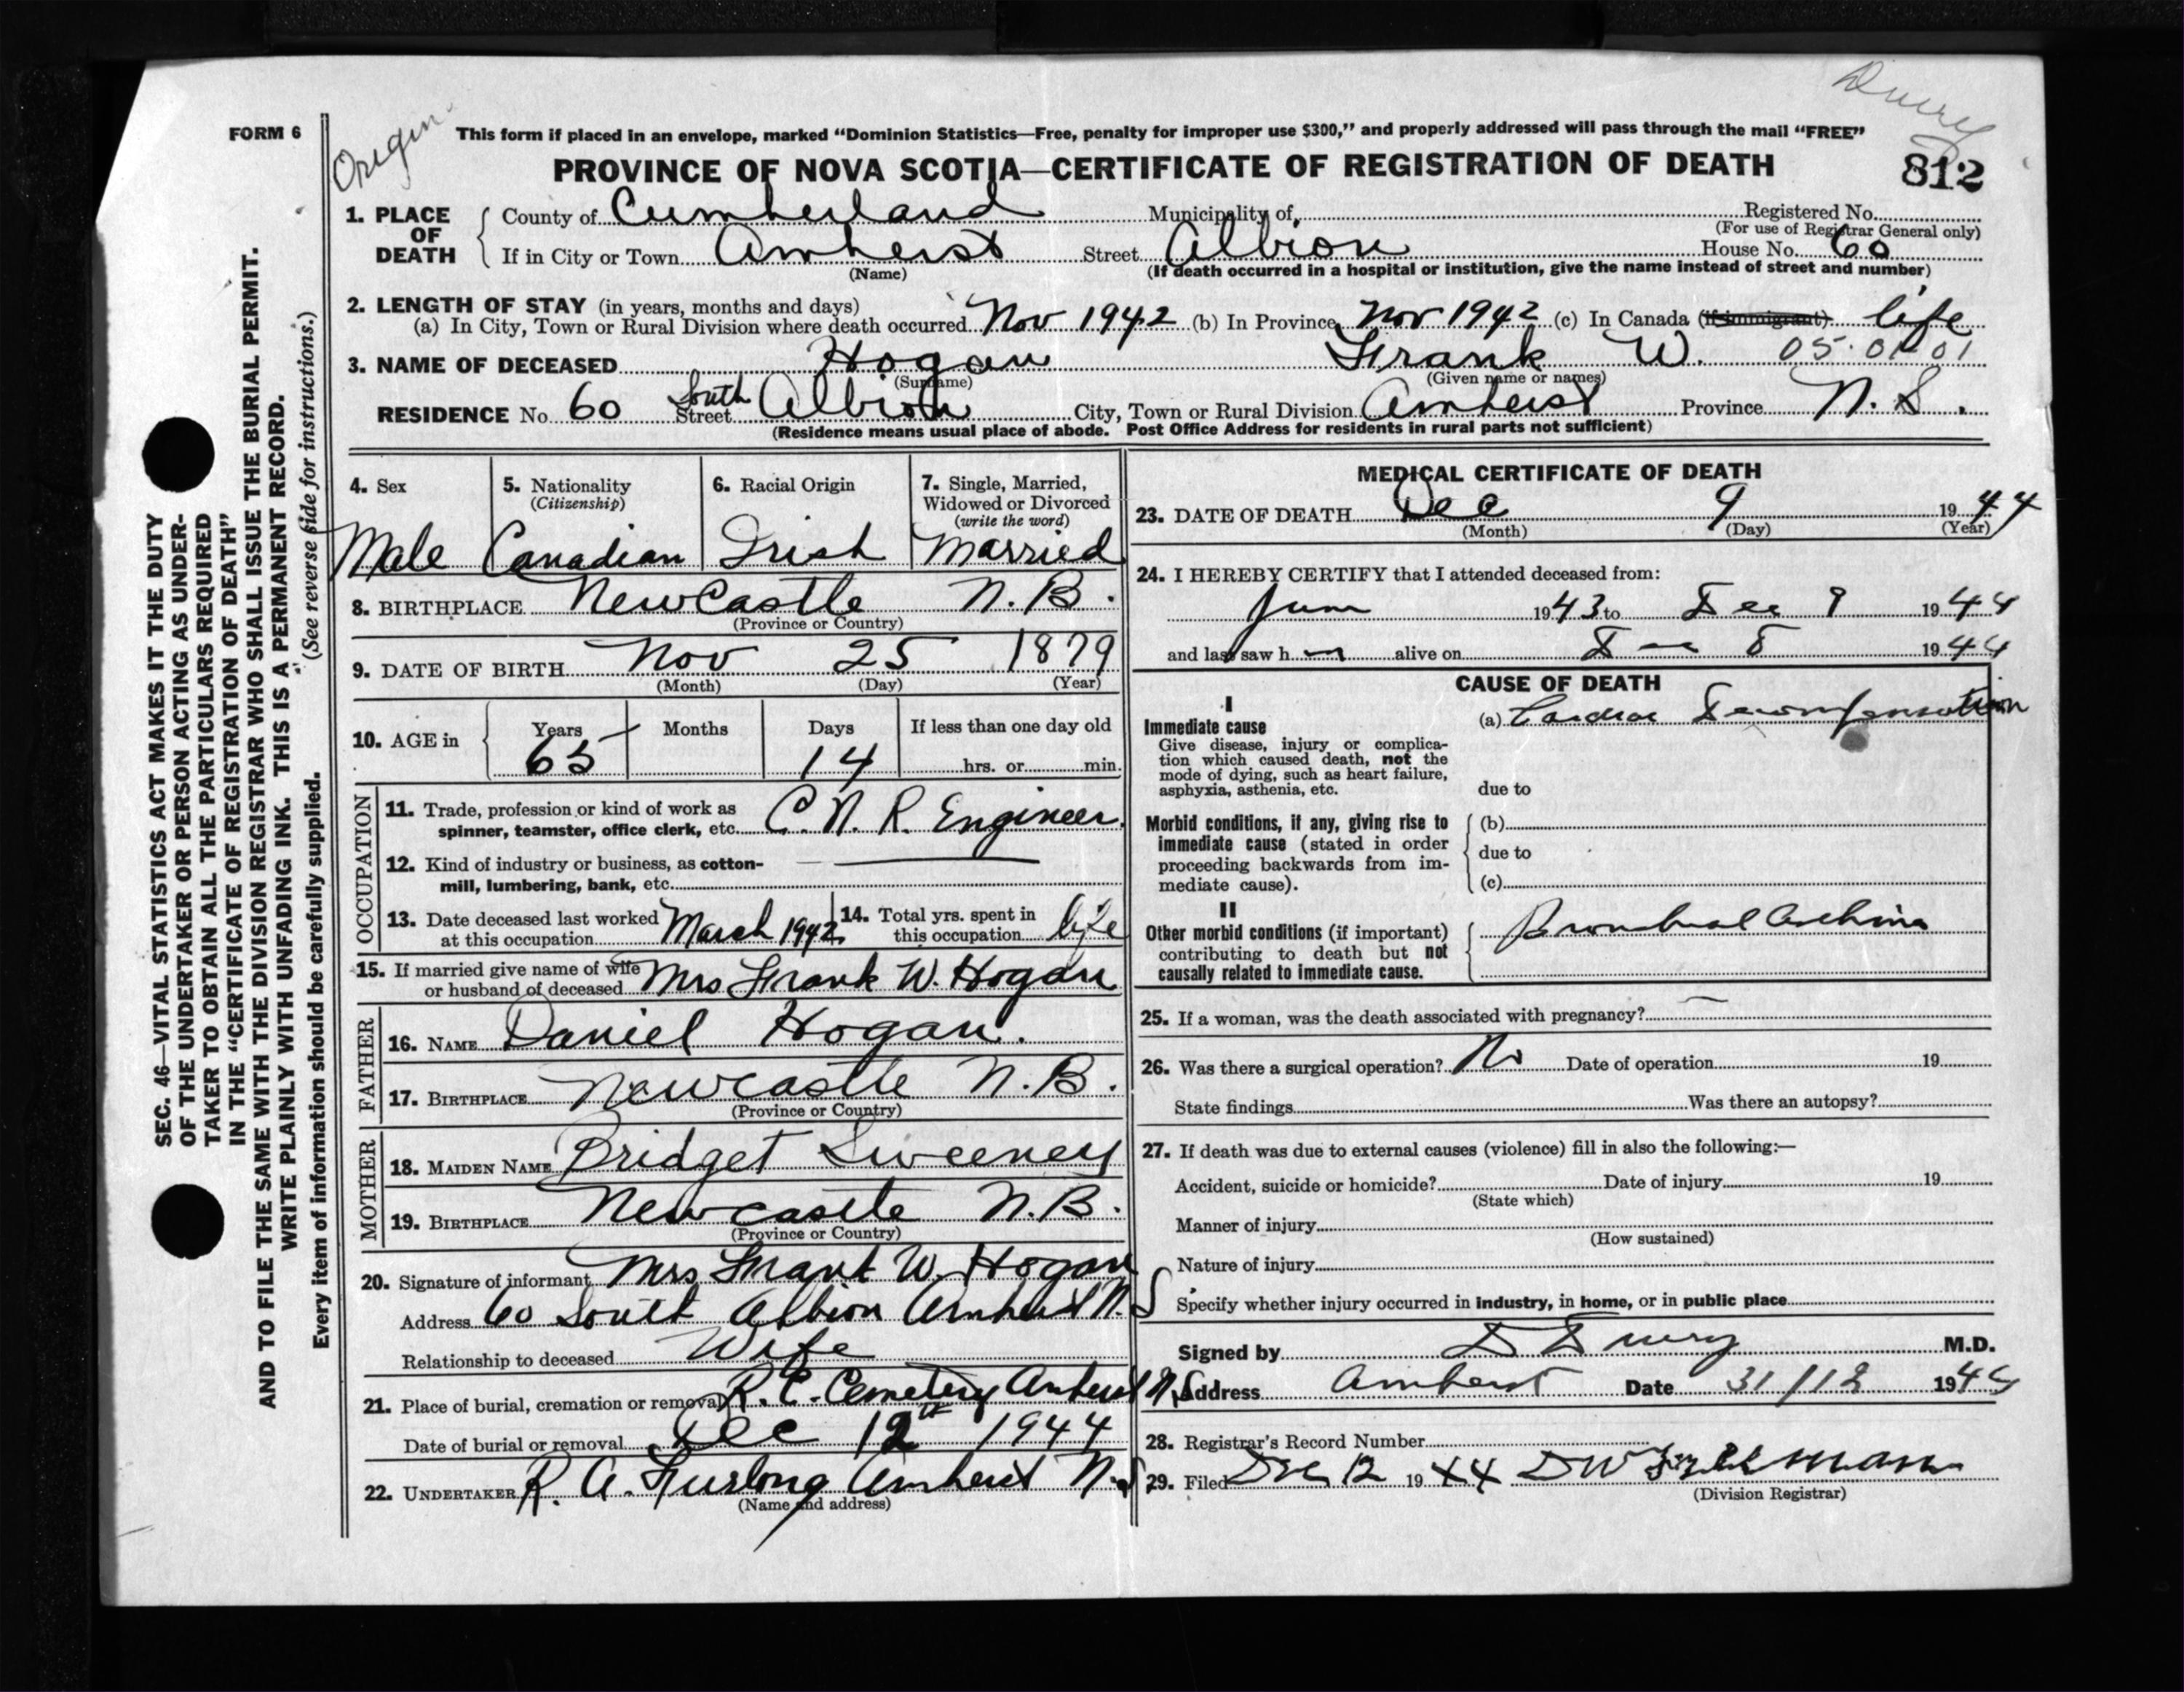 Drury
FORM 6
Origin.
This form if placed in an envelope, marked "Dominion Statistics—Free, penalty for improper use $300," and properly addressed will pass through the mail "FREE"
PROVINCE OF NOVA SCOTIA—CERTIFICATE OF REGISTRATION OF DEATH
812
1. PLACE OF DEATH County of Cumberland Municipality of Registered No.
(For use of Registrar General only)
If in City or Town Amherst Street Albion House No. 60
(Name) (If death occurred in a hospital or institution, give the name instead of street and number)
2. LENGTH OF STAY (in years, months and days)
(a) In City, Town or Rural Division where death occurred Nov 1942 (b) In Province Nov 1942 (c) In Canada (if immigrant) life
3. NAME OF DECEASED Hogan Frank W. 05.01-01
(Surname) (Given name or names)
RESIDENCE No. 60 South Street Albion City, Town or Rural Division Amherst Province N.S.
(Residence means usual place of abode. Post Office Address for residents in rural parts not sufficient)
4. Sex 5. Nationality (Citizenship) 6. Racial Origin 7. Single, Married, Widowed or Divorced (write the word)
Male Canadian Irish Married
8. BIRTHPLACE NewCastle N.B.
(Province or Country)
9. DATE OF BIRTH Nov 25 1879
(Month) (Day) (Year)
10. AGE in Years Months Days If less than one day old
65 14 hrs. or min.
OCCUPATION
11. Trade, profession or kind of work as
spinner, teamster, office clerk, etc. C.N.R. Engineer.
12. Kind of industry or business, as cotton-
mill, lumbering, bank, etc.
13. Date deceased last worked at this occupation March 1942
14. Total yrs. spent in this occupation life
15. If married give name of wife
or husband of deceased Mrs Frank W. Hogan
FATHER
16. NAME Daniel Hogan.
17. BIRTHPLACE Newcastle N.B.
(Province or Country)
MOTHER
18. MAIDEN NAME Bridget Sweeney
19. BIRTHPLACE Newcastle N.B.
(Province or Country)
20. Signature of informant Mrs Frank W. Hogan
Address 60 South Albion Amherst N.S
Relationship to deceased Wife
21. Place of burial, cremation or removal R.C. Cemetery Amherst N.S
Date of burial or removal Dec 12th 1944
22. UNDERTAKER R.A. Furlong Amherst N.S
(Name and address)
MEDICAL CERTIFICATE OF DEATH
23. DATE OF DEATH Dec 9 1944
(Month) (Day) (Year)
24. I HEREBY CERTIFY that I attended deceased from:
June 1943 to Dec 9 1944
and last saw h m alive on Dec 8 1944
CAUSE OF DEATH
I
Immediate cause (a) Cardiac Decompensation
Give disease, injury or complica-
tion which caused death, not the
mode of dying, such as heart failure,
asphyxia, asthenia, etc. due to
Morbid conditions, if any, giving rise to (b)
immediate cause (stated in order due to
proceeding backwards from im-
mediate cause). (c)
II
Other morbid conditions (if important) Bronchial Asthma
contributing to death but not
causally related to immediate cause.
25. If a woman, was the death associated with pregnancy? —
26. Was there a surgical operation? No Date of operation 19
State findings Was there an autopsy?
27. If death was due to external causes (violence) fill in also the following:—
Accident, suicide or homicide? Date of injury 19
(State which)
Manner of injury
(How sustained)
Nature of injury
Specify whether injury occurred in industry, in home, or in public place
Signed by D Drury M.D.
Address Amherst Date 31/12 1944
28. Registrar's Record Number
29. Filed Dec 12 1944
(Division Registrar)
SEC. 46—VITAL STATISTICS ACT MAKES IT THE DUTY
OF THE UNDERTAKER OR PERSON ACTING AS UNDER-
TAKER TO OBTAIN ALL THE PARTICULARS REQUIRED
IN THE "CERTIFICATE OF REGISTRATION OF DEATH"
AND TO FILE THE SAME WITH THE DIVISION REGISTRAR WHO SHALL ISSUE THE BURIAL PERMIT.
WRITE PLAINLY WITH UNFADING INK. THIS IS A PERMANENT RECORD.
Every item of information should be carefully supplied. (See reverse side for instructions.)